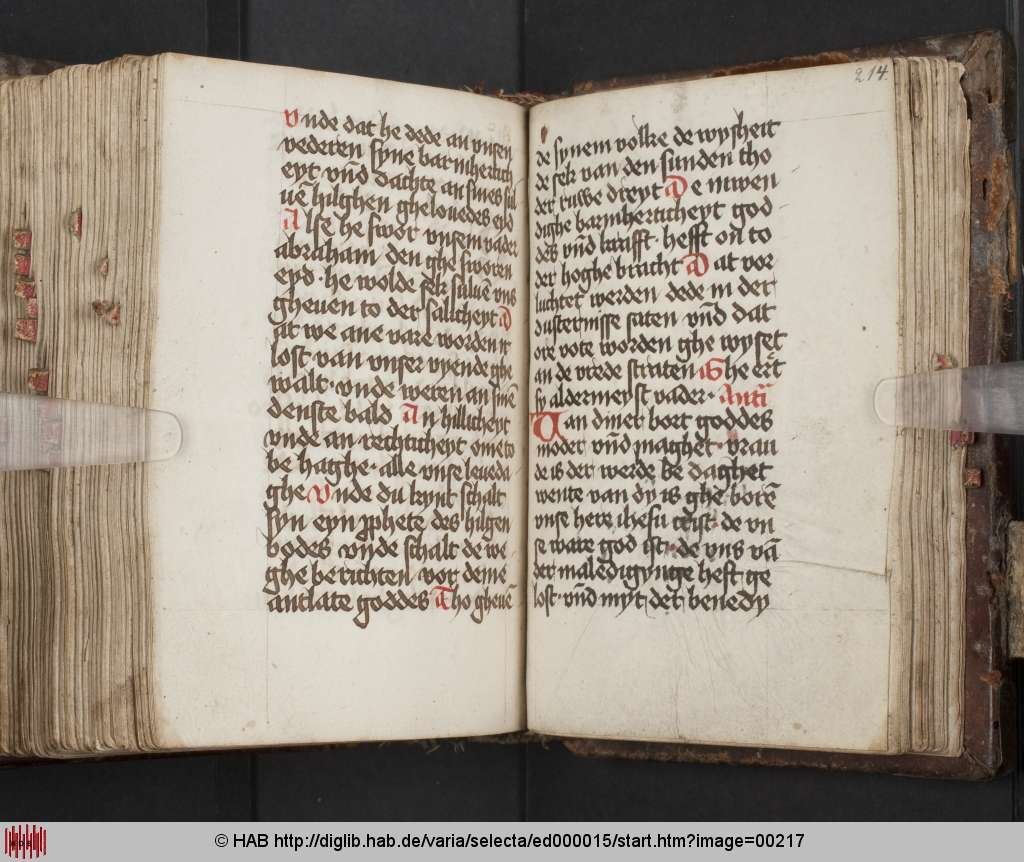 Vnde dat he dede an vnsen
vederen syne barmhertich
eyt vn̄d dachte an sines sul
uē hilghen ghelouedes eyd
Alse he swor vnsem vader
abraham den ghe sworen
eyd · he wolde sek suluē vns
gheuen to der salicheyt D
at we ane vare worden ir
lost van vnser vyende ghe
walt · vnde weren an sinē
denste bald An hillicheyt
vnde an rechticheyt ome to
be haghe · alle vnse leueda
ghe Vnde du kynt schalt
syn eyn ꝓphete des hilgen
godes vn̄de schalt de we
ghe berichten vor deme
antlate goddes Tho gheuē
214
de synem volke de wysheit
de sek van den sunden tho
der ruwe dreyt De niwen
dighe barmherticheyt god
des vn̄d krafft · hefft on to
der hoghe bracht Dat vor
luchtet werden dede in der
dusternisse saten vn̄d dat
ore vote worden ghe wyset
an de vrede straten Ghe ert
sy aldermeyst vader · Anti
Van diner bort goddes
moder vn̄d maghet · vrau
de is der werde be daghet
wente van dy is ghe borē
vnse here ihesu crist · de vn
se ware god ist · de vns vā
der maledigynge heft ge
lost · vn̄d myt der benedy
© HAB http://diglib.hab.de/varia/selecta/ed000015/start.htm?image=00217